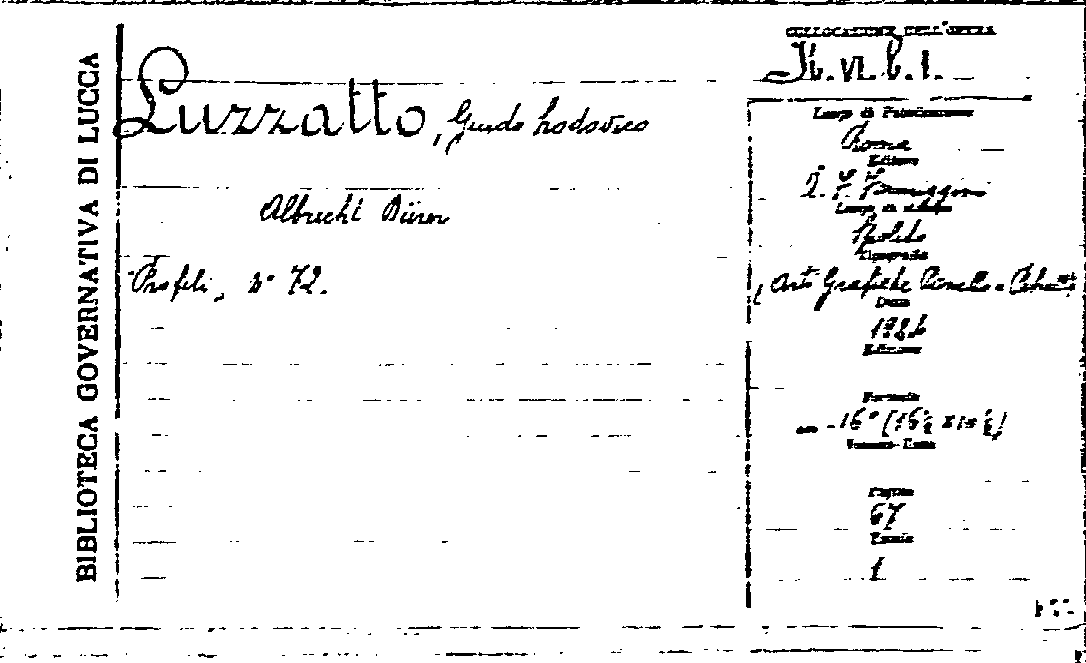 BIBLIOTECA GOVERNATIVA DI LUCCA
COLLOCAZIONE DELL'OPERA
Luzzatto, Guido Lodovico
Albrecht Dürer
Profili, n° 72.
Luogo di Pubblicazione
Roma
Editore
Luogo di stampa
Spoleto
Tipografia
(Arti Grafiche Panetto e Petrelli)
Data
Edizione
Formato
16° (16½ x 10½)
Pagine
67
Tavole
1